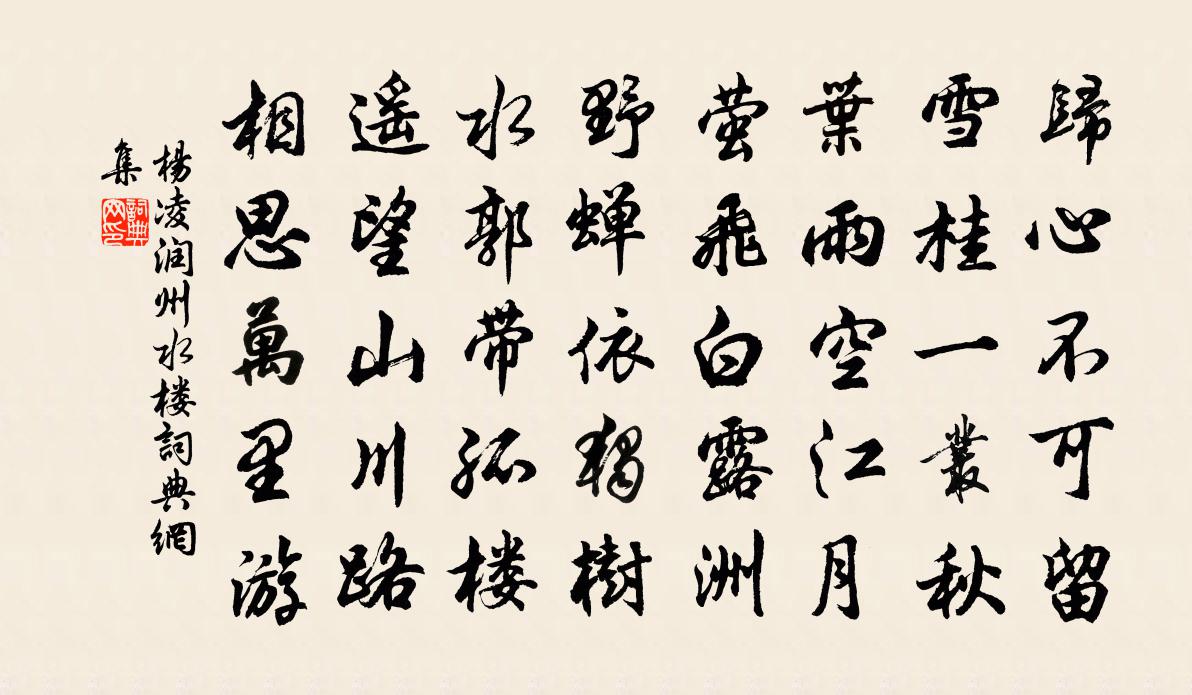 歸心不可留
雪桂一叢秋
葉雨空江月
萤飛白露洲
野蝉依獨樹
水郭带孤楼
遥望山川路
相思萬里游
楊凌润州水楼詞典網
集
詞典网印